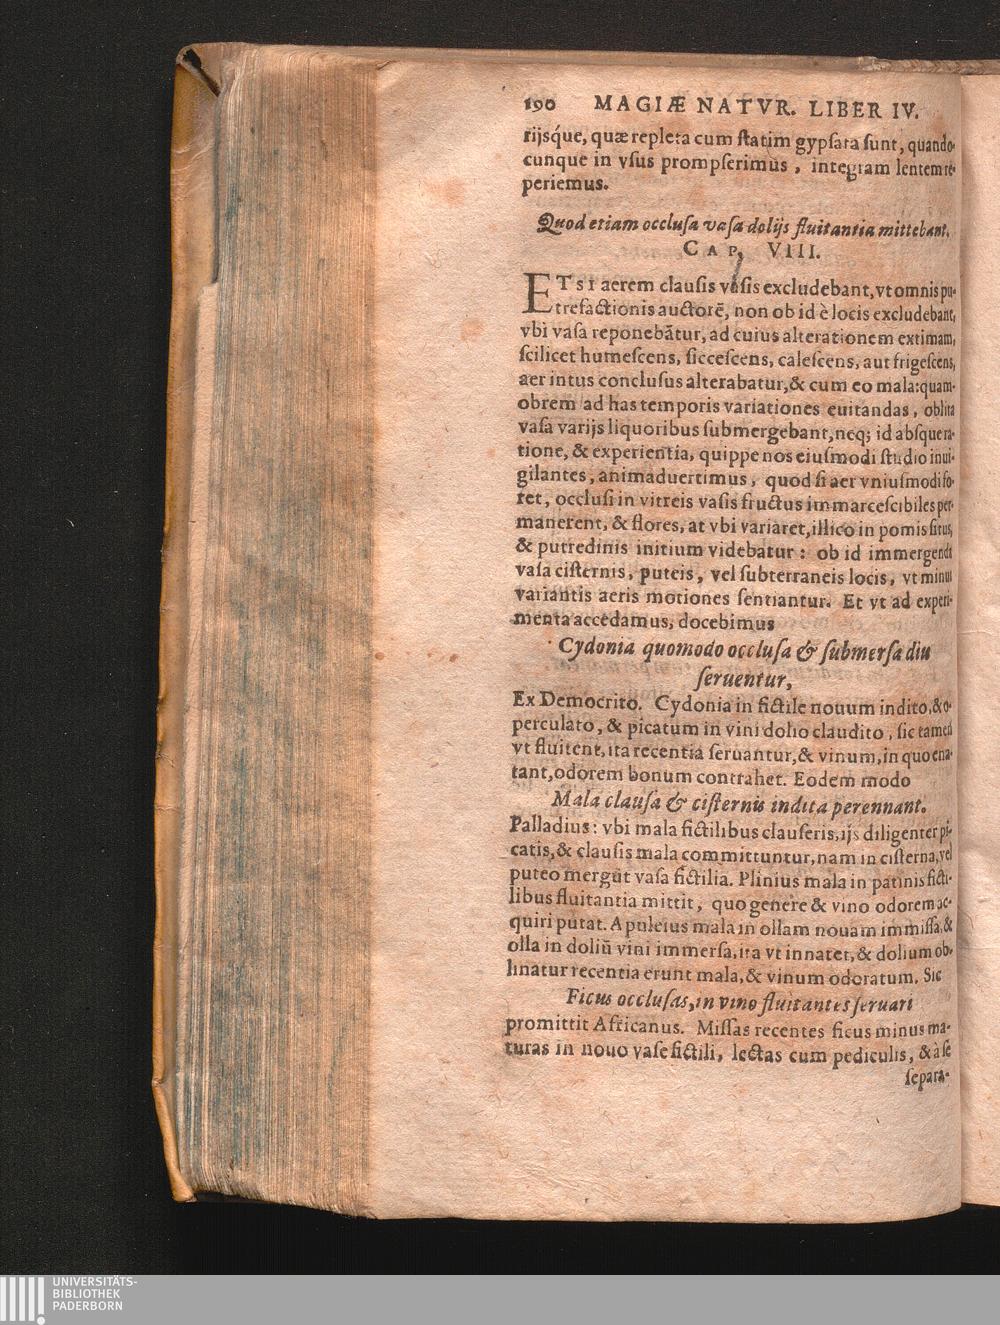 190 MAGIÆ NATVR. LIBER IV.
rijsq́ue, quæ repleta cum ſtatim gypſata ſunt, quando-
cunque in vſus prompſerimus, integram lentem re-
periemus.
Quod etiam occluſa vaſa dolijs fluitantia mittebant.
CAP. VIII.
ETSI aerem clauſis vaſis excludebant, vt omnis pu-
trefactionis auctorē, non ob id è locis excludebant,
vbi vaſa reponebātur, ad cuius alterationem extimam,
ſcilicet humeſcens, ſicceſcens, caleſcens, aut frigeſcens,
aer intus concluſus alterabatur, & cum eo mala: quam-
obrem ad has temporis variationes euitandas, oblita
vaſa varijs liquoribus ſubmergebant, neq; id abſque ra-
tione, & experientia, quippe nos eiuſmodi ſtudio inui-
gilantes, animaduertimus, quod ſi aer vniuſmodi fo-
ret, occluſi in vitreis vaſis fructus immarceſcibiles per-
manerent, & flores, at vbi variaret, illico in pomis ſitus,
& putredinis initium videbatur: ob id immergendi
vaſa ciſternis, puteis, vel ſubterraneis locis, vt minus
variantis aeris motiones ſentiantur. Et vt ad experi-
menta accedamus, docebimus
Cydonia quomodo occluſa & ſubmerſa diu
ſeruentur,
Ex Democrito. Cydonia in fictile nouum indito, & o-
perculato, & picatum in vini dolio claudito, ſic tamen
vt fluitent, ita recentia ſeruantur, & vinum, in quo ena-
tant, odorem bonum contrahet. Eodem modo
Mala clauſa & ciſternis indita perennant.
Palladius: vbi mala fictilibus clauſeris, ijs diligenter pi-
catis, & clauſis mala committuntur, nam in ciſterna, vel
puteo mergūt vaſa fictilia. Plinius mala in patinis ficti-
libus fluitantia mittit, quo genere & vino odorem ac-
quiri putat. Apuleius mala in ollam nouam immiſſa, &
olla in doliū vini immerſa, ita vt innatet, & dolium ob-
linatur recentia erunt mala, & vinum odoratum. Sic
Ficus occluſas, in vino fluitantes ſeruari
promittit Africanus. Miſſas recentes ficus minus ma-
turas in nouo vaſe fictili, lectas cum pediculis, & à ſe
ſepara-
UNIVERSITÄTS-
BIBLIOTHEK
PADERBORN